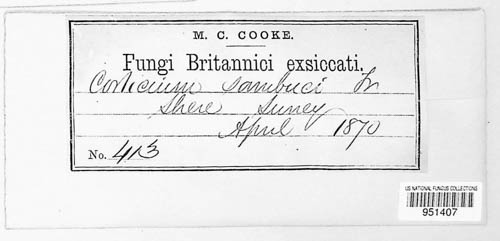 M. C. COOKE.
Fungi Britannici exsiccati.
Corticium sambuci Fr
Shere Surrey
April 1870
No. 413
US NATIONAL FUNGUS COLLECTIONS
951407